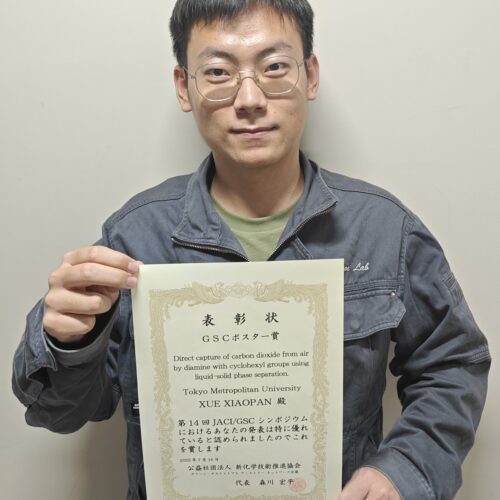 Lab
表彰状
GSCポスター賞
Direct capture of carbon dioxide from air
by diamine with cyclohexyl groups using
liquid-solid phase separation.
Tokyo Metropolitan University
XUE XIAOPAN 殿
第14回JACI/GSCシンポジウム
におけるあなたの発表は特に優れ
ていると認められましたのでこれ
を賞します
公益社団法人 新化学技術推進協会
代表 森川 宏平